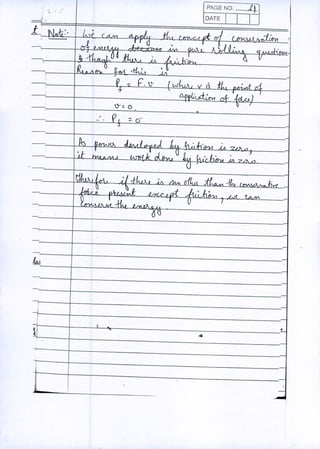 PAGE NO.
DATE
Note:- We can apply the concept of conservation
of energy in pure rolling question
though there is friction.
Reason for this is
P_f = F.v (where v is the point of
application of force)
v=0
∴ P_f = 0
As power developed by friction is zero,
it means work done by friction is zero.
Therefore if there is no other than the conservative
force present except friction, we can
conserve the energy.